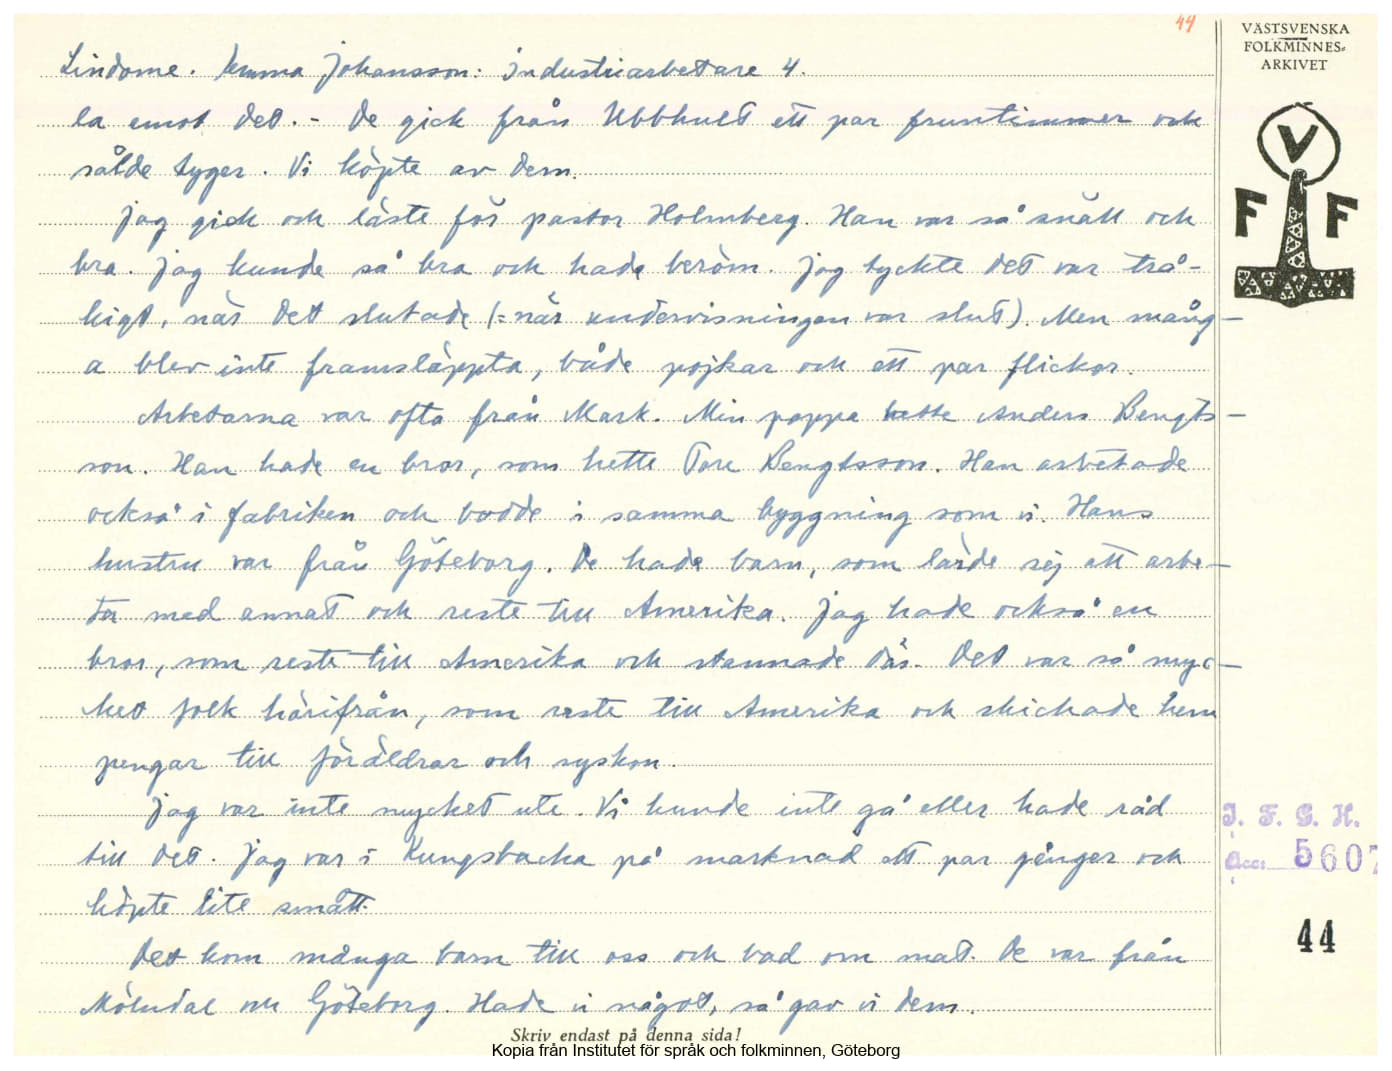 44
VÄSTSVENSKA
FOLKMINNES-
ARKIVET
V
F F
Lindome. Emma Johansson: Industriarbetare 4.
la emot det. - De gick från Ubbhult ett par fruntimmer och
sålde tyger. Vi köpte av dem.
Jag gick och läste för pastor Holmberg. Han var så snäll och
bra. Jag kunde så bra och hade beröm. Jag tyckte det var trå-
kigt, när det slutade (=när undervisningen var slut). Men mång-
a blev inte framsläppta, både pojkar och ett par flickor.
Arbetarna var ofta från Mark. Min pappa hette Anders Bengts-
son. Han hade en bror, som hette Tore Bengtsson. Han arbetade
också i fabriken och bodde i samma byggning som vi. Hans
hustru var från Göteborg. De hade barn, som lärde sej att arbe-
ta med annat och reste till Amerika. Jag hade också en
bror, som reste till Amerika och stannade där. Det var så myc-
ket folk härifrån, som reste till Amerika och skickade hem
pengar till föräldrar och syskon.
Jag var inte mycket ute. Vi kunde inte gå eller hade råd
till det. Jag var i Kungsbacka på marknad ett par gånger och
köpte lite smått.
Det kom många barn till oss och bad om mat. De var från
Mölndal och Göteborg. Hade vi något, så gav vi dem.
I. F. G. H.
Acc: 5607
44
Skriv endast på denna sida!
Kopia från Institutet för språk och folkminnen, Göteborg